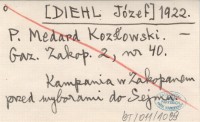 [DIEHL Józef] 1922.
P. Medard Kozłowski. —
Gaz. Zakop. 2, nr 40.
Kampania w Zakopanem
przed wyborami do Sejmu.
BT/011/1089